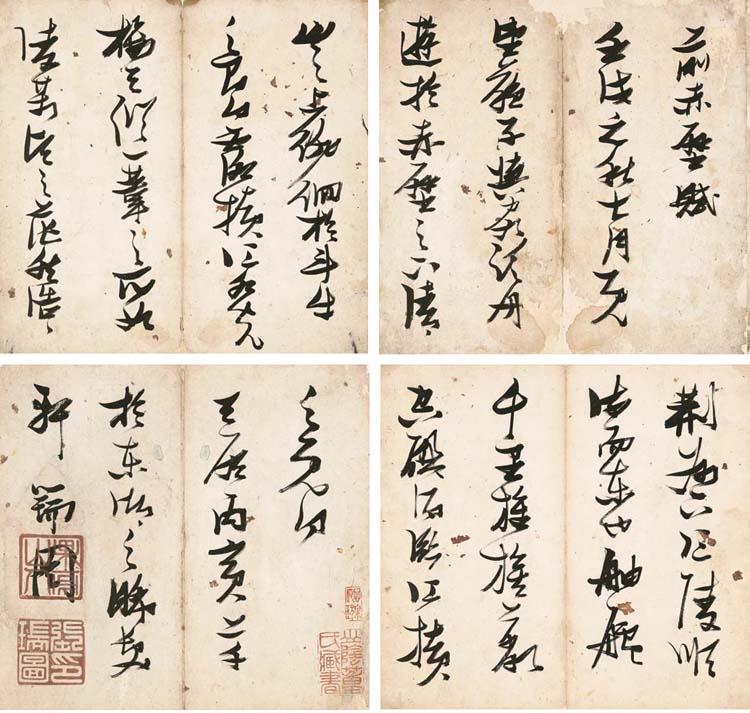 前赤壁賦
壬戌之秋七月既
望蘇子與客泛舟
遊於赤壁之下清〻
山之上徘徊於斗牛
之間白露橫江水光
接天縱一葦之所如
陵萬頃之茫然浩〻
荊州下江陵順
流而東也舳艫
千里旌旗蔽
空釃酒臨江橫
之既白
丙寅
於東湖之
瑞圖
張瑞圖印
氏藏書